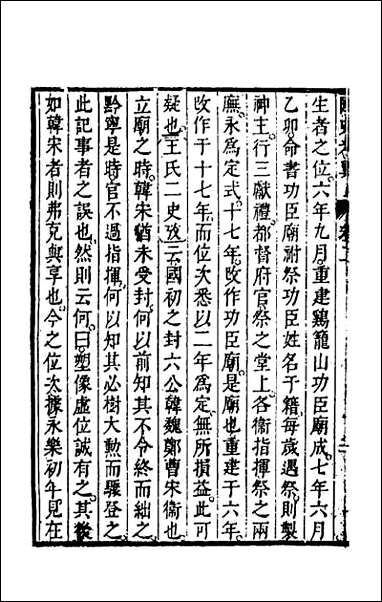 生者之位。六年九月。重建鷄籠山功臣廟成。七年六月
乙卯。命書功臣廟祔祭功臣姓名于籍。每歲遇祭。則製
神主。行三獻禮。都督府官祭之堂上。各衞指揮祭之兩
廡。永為定式。十七年。改作功臣廟。是廟也重建于六年。
改作于十七年。而位次悉以二年為定。無所損益。此可
疑也。王氏二史攷云。國初之封六公。韓魏鄭曹宋衞也。
立廟之時。韓宋猶未受封。何以前知其不令終而絀之
黔寧是時官不過指揮。何以知其必樹大勲而驟登之
此記事者之誤也。然則云何。曰。塑像虛位誠有之。其後
如韓宋者則弗克與享也。今之位次。據永樂初年見在